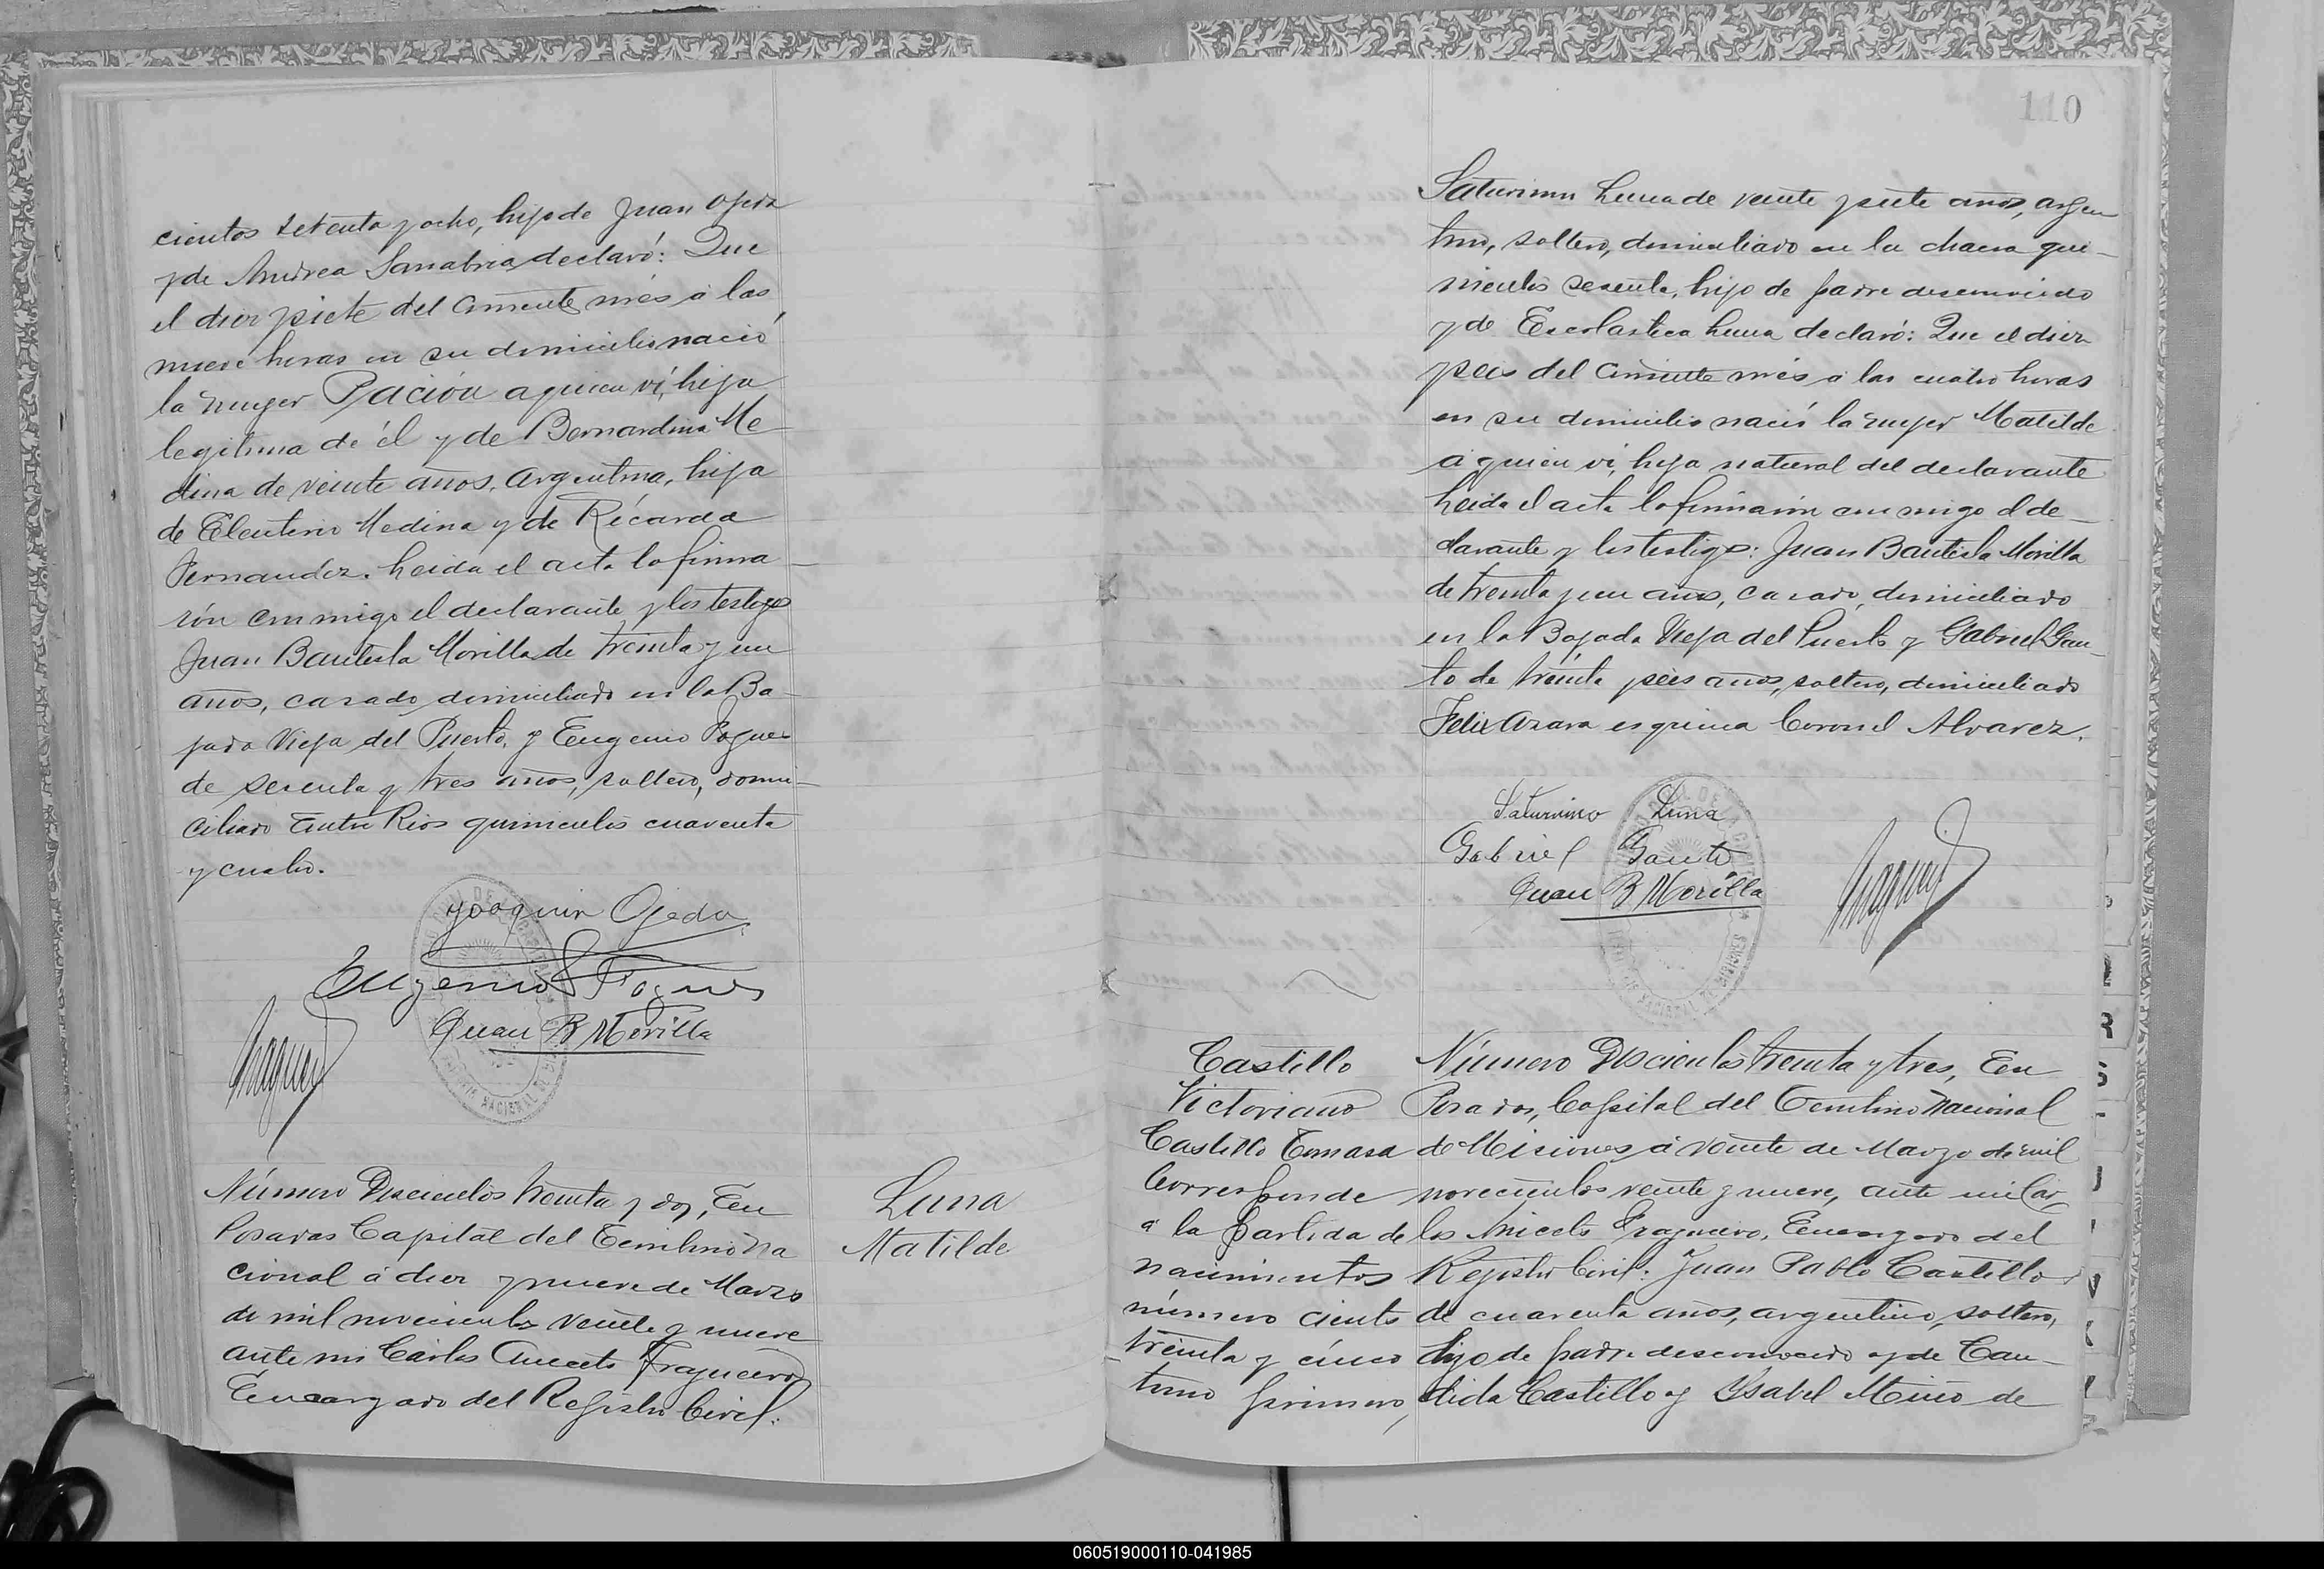 cientos setenta y ocho, hijo de Juan Ojeda
y de Andrea Sanabria declaró: Que
el diez y siete del corriente més á las
nueve horas en su domicilio nació
la muger Pación a quien ví, hija
legitima de él y de Bernardina Me
dina de veinte años, argentina, hija
de Eleuterio Medina y de Ricarda
Fernandez. Leida el acta la firma
rón conmigo el declarante y los testigos
Juan Bautista Morilla de treinta y un
años, casado, domiciliado en la Ba
jada Vieja del Puerto, y Eugenio
de sesenta y tres años, soltero, domi-
ciliado Entre Rios quinientos cuarenta
y cuatro.
Joaquin Ojeda
Eugenio
Juan B Morilla
Número Doscientos treinta y dos, En
Posadas Capital del Territorio Na
cional á diez y nueve de Marzo
de mil novecientos veinte y nueve
ante mi Carlos Aniceto Fraguero
Encargado del Registro Civil:
Luna
Matilde
110
Saturnino Luna de veinte y siete años, argen
tino, soltero, domiciliado en la chacra qui-
nientos sesenta, hijo de padre desconocido
y de Escolastica Luna declaró: Que el diez
y seis del corriente més a las cuatro horas
en su domicilio nació la muger Matilde
á quien ví, hija natural del declarante
Leida el acta la firmarón conmigo el de-
clarante y los testigos: Juan Bautista Morilla
de treinta y un años, casado, domiciliado
en la Bajada Vieja del Puerto y Gabriel Gau-
to de treinta y seis años, soltero, domiciliado
Felix Azara esquina Coronel Alvarez.
Saturnino Luna
Gabriel Gauto
Juan B Morilla
Castillo
Victoriano
Castillo Tomasa
Corresponde
á la partida de
nacimientos
número ciento
treinta y cinco
tomo primero,
Número Doscientos treinta y tres, En
Posadas, Capital del Territorio Nacional
de Misiones á veinte de Marzo de mil
novecientos veinte y nueve, ante mi Car
los Aniceto Fraguero, Encargado del
Registro Civil: Juan Pablo Castillo
de cuarenta años, argentino, soltero,
hijo de padre desconocido y de Can-
dida Castillo y Ysabel Miño de
060519000110-041985